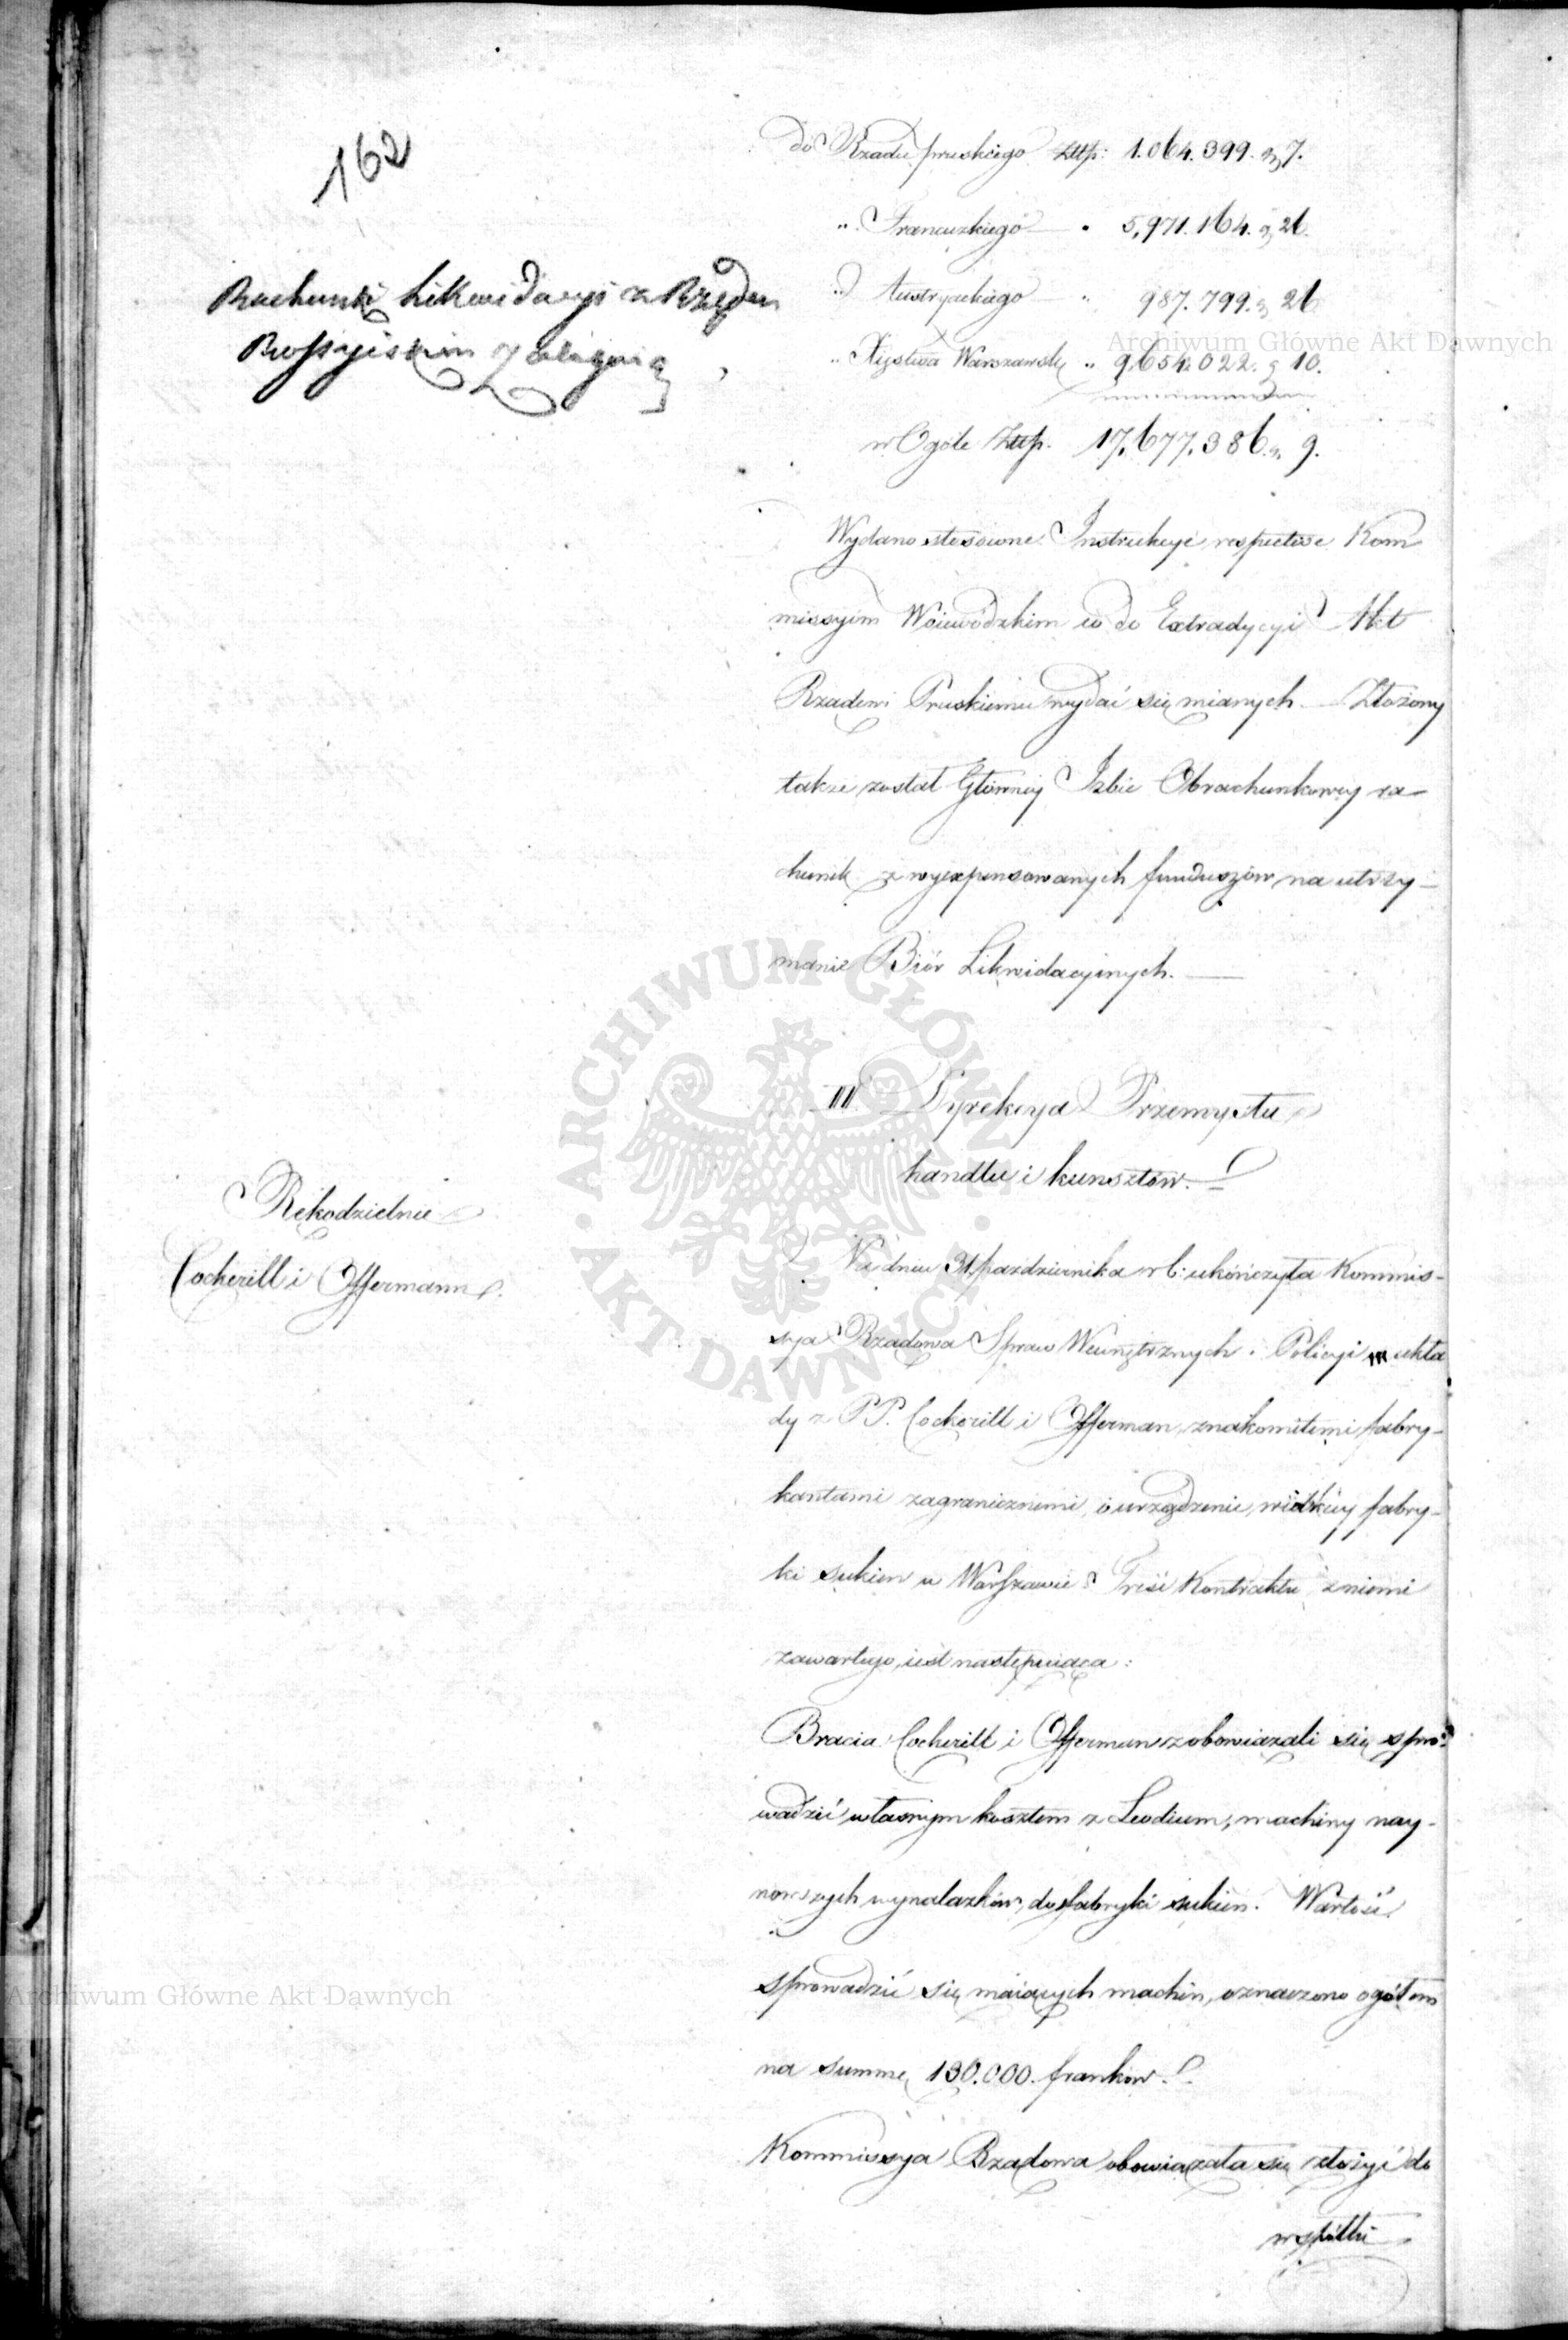 162
do Rządu pruskiego Złłp: 1.064.399. g. 7.
" Francuzkiego " 5,971.164. g. 26.
" Austryackiego " 987.799. g. 26
" Xięstwa Warszawskº " 9,654,022. g 10.
w Ogóle Złłp. 17,677,386. g. 9.
Rachunki Likwidacyi z Rządem
Rossyiskim
Wydano stosowne Instrukcye respective Kom
missyiom Woiewódzkim co do Extradycyi Akt
Rządowi Pruskiemu wydać się mianych. — Złożony
także został Główney Izbie Obrachunkowey ra-
chunek z wyexpensowanych funduszów na utrzy-
manie Biór Likwidacyinych. —
III. Dyrekcya Przemysłu
handlu i kunsztów. —
Rękodzielnie
Cockerill i Offermann.
Na dniu 31. października r. b. ukończyła Kommis-
sya Rządowa Spraw Wewnętrznych i Policyi ukła
dy z PP. Cockerill i Offerman, znakomitemi fabry-
kantami zagranicznemi, o urządzenie wielkiey fabry-
ki sukien w Warszawie. Treść Kontraktu z niemi
zawartego, iest następuiąca:
Bracia Cockerill i Offerman zobowiązali się spro-
wadzić własnym kosztem z Leodium, machiny nay-
nowszych wynalazków, do fabryki sukien. Wartość
sprowadzić się maiących machin, oznaczono ogółem
na summę 130.000. franków.
Kommissya Rządowa obowiązała się złożyć do
wspólki
Archiwum Główne Akt Dawnych
Archiwum Główne Akt Dawnych
ARCHIWUM GŁÓWNE AKT DAWNYCH